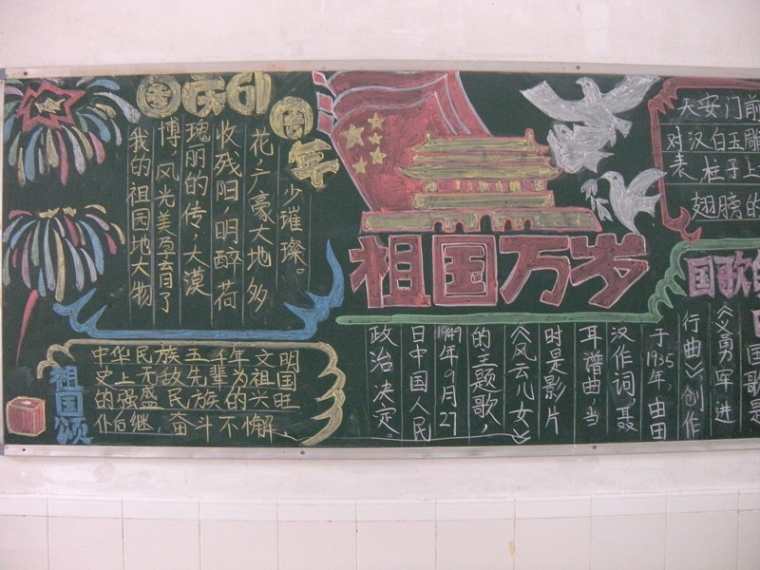 国庆61周年
我的祖国地大物
博,风光美孕育了
瑰丽的传,大漠
收残阳,明醉荷
花,广豪大地多
少璀璨。
祖国万岁
天安门前
对汉白玉雕
表,柱子上
翅膀的
祖国颂
中华民族五千年文明
史上无敌先辈为祖国
的强盛民族的兴旺
仆后继,奋斗不懈.
国歌的
国歌是
《义勇军进
行曲》创作
于1935年,由田
汉作词,聂
耳谱曲,当
时是影片
《风云儿女》
的主题歌,
1949年9月27
日中国人民
政治决定: